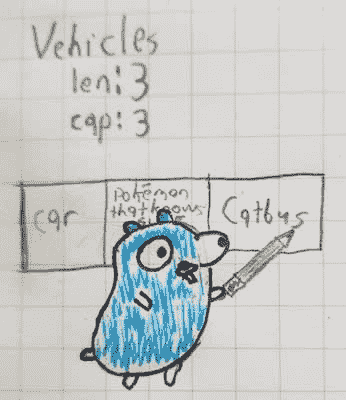 Vehicles
len: 3
cap: 3
car
Pokémon
that knows
Catbus